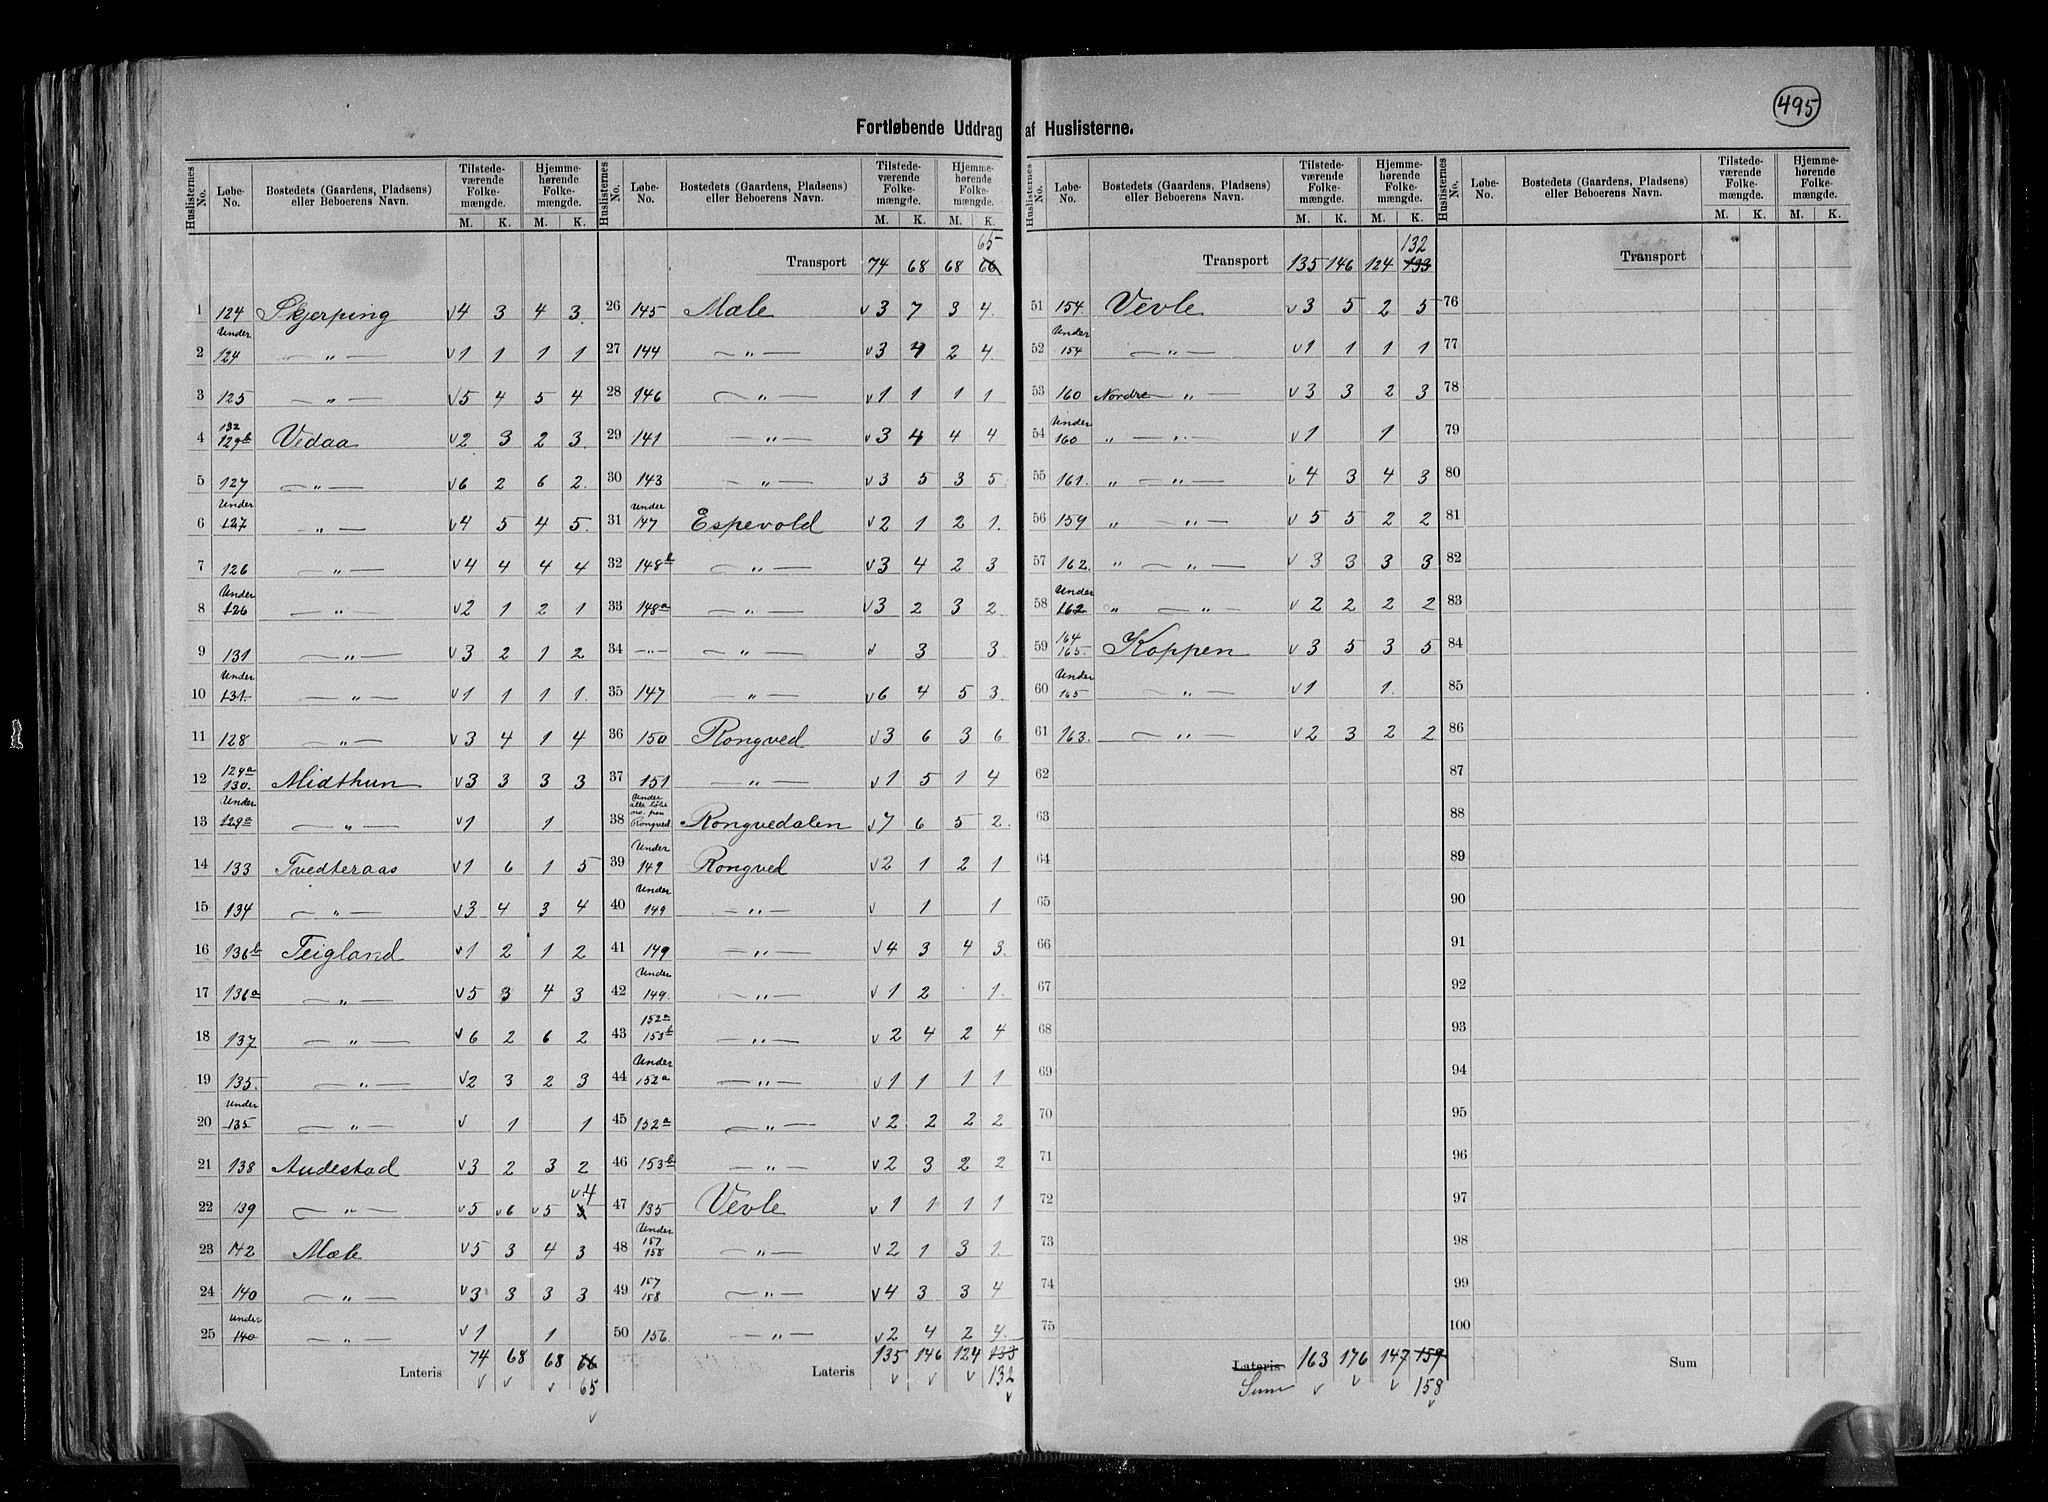 495
Fortløbende Uddrag af Huslisterne.
Huslisternes No. | Løbe-No. | Bostedets (Gaardens, Pladsens) eller Beboerens Navn. | Tilstedeværende Folkemængde. M. K. | Hjemmehørende Folkemængde. M. K.
1 124 Skjerping v4 3 4 3
2 Under 124 — „ — v1 1 1 1
3 125 — „ — v5 4 5 4
4 132 129b Vedaa v2 3 2 3
5 127 — „ — v6 2 6 2
6 Under 127 — „ — v4 5 4 5
7 126 — „ — v4 4 4 4
8 Under 126 — „ — v2 1 2 1
9 131 — „ — v3 2 1 2
10 Under 131 — „ — v1 1 1 1
11 128 — „ — v3 4 1 4
12 129a 130. Midthun v3 3 3 3
13 Under 129a — „ — v1 1
14 133 Tvedteraas v1 6 1 5
15 134 — „ — v3 4 3 4
16 136b Teigland v1 2 1 2
17 136a — „ — v5 3 4 3
18 137 — „ — v6 2 6 2
19 135. — „ — v2 3 2 3
20 Under 135 — „ — v 1 1
21 138 Audestad v3 2 3 2
22 139 — „ — v5 v6 v5 3 v4
23 142 Mæle v5 3 4 3
24 140 — „ — v3 3 3 3
25 Under 140 — „ — v1 1
Lateris 74 68 68 66 65
v v v v
Huslisternes No. | Løbe-No. | Bostedets (Gaardens, Pladsens) eller Beboerens Navn. | Tilstedeværende Folkemængde. M. K. | Hjemmehørende Folkemængde. M. K.
Transport 74 68 68 66 65
26 145 Mæle v3 7 3 4
27 144 — „ — v3 4 2 4
28 146 — „ — v1 1 1 1
29 141 — „ — v3 4 4 4
30 143 — „ — v3 5 3 5
31 Under 147 Espevold v2 1 2 1
32 148b — „ — v3 4 2 3
33 148a — „ — v3 2 3 2
34 —„— — „ — v 3 3
35 147 — „ — v6 4 5 3
36 150 Rongved v3 6 3 6
37 151 — „ — v1 5 1 4
38 Under alle løbe no. paa Rongved Rongvedalen v7 6 5 2
39 Under 149 Rongved v2 1 2 1
40 Under 149 — „ — v 1 1
41 149 — „ — v4 3 4 3
42 Under 149. — „ — v1 2 1
43 152a 153b — „ — v2 4 2 4
44 Under 152a — „ — v1 1 1 1
45 152a — „ — v2 2 2 2
46 153b — „ — v2 3 2 2
47 135 Vevle v1 1 1 1
48 Under 157 158 — „ — v2 1 3 1
49 157 158 — „ — v4 3 3 4
50 156 — „ — v2 4 2 4
Lateris 135 146 124 133 132
v v v v
Huslisternes No. | Løbe-No. | Bostedets (Gaardens, Pladsens) eller Beboerens Navn. | Tilstedeværende Folkemængde. M. K. | Hjemmehørende Folkemængde. M. K.
Transport 135 146 124 133 132
51 154 Vevle v3 5 2 5
52 Under 154 — „ — v1 1 1 1
53 160 Nordre — „ — v3 3 2 3
54 Under 160 „ — „ — v1 1
55 161. „ — „ — v4 3 4 3
56 159 „ — „ — v5 5 2 2
57 162. „ — „ — v3 3 3 3
58 Under 162 „ — „ — v2 2 2 2
59 164 165. Koppen v3 5 3 5
60 Under 165 — „ — v1 1
61 163. — „ — v2 3 2 2
62
63
64
65
66
67
68
69
70
71
72
73
74
75
Lateris Sum 163 176 147 159 158
v v v v
Huslisternes No. | Løbe-No. | Bostedets (Gaardens, Pladsens) eller Beboerens Navn. | Tilstedeværende Folkemængde. M. K. | Hjemmehørende Folkemængde. M. K.
Transport
76
77
78
79
80
81
82
83
84
85
86
87
88
89
90
91
92
93
94
95
96
97
98
99
100
Sum